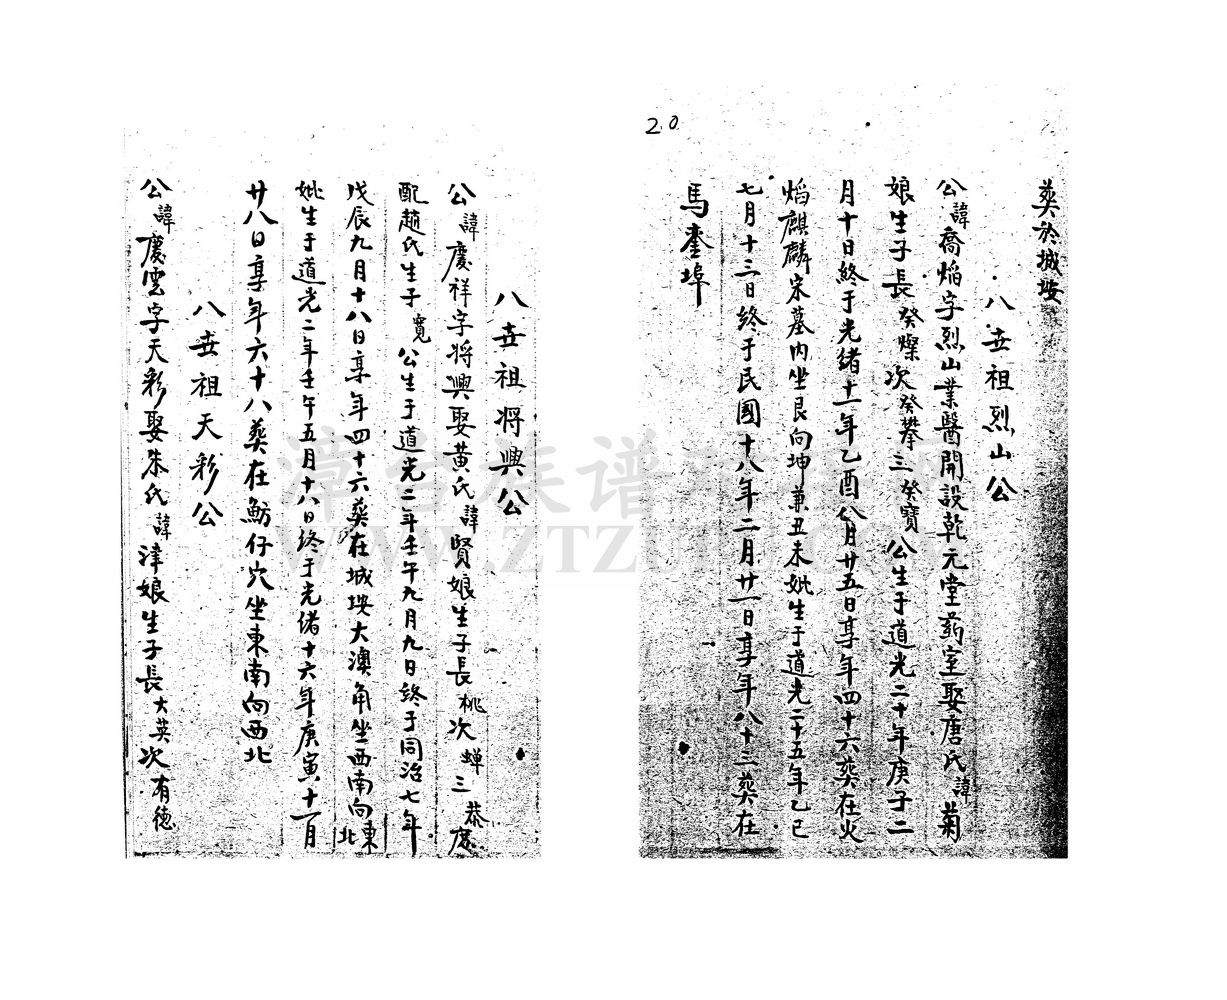 20
葬於城垵
八世祖烈山公
公諱喬焰字烈山業醫開設乾元堂葯室娶唐氏諱菊
娘生子長癸燦次癸攀三癸寶公生于道光二十年庚子二
月十日終于光緒十一年乙酉八月廿五日享年四十六葬在火
焰麒麟宋墓內坐艮向坤兼丑未妣生于道光二十五年乙巳
七月十三日終于民國十八年二月廿一日享年八十三葬在
馬埭埠
八世祖将興公
公諱慶祥字将興娶黃氏諱賢娘生子長桃次蟬三恭庶
配趙氏生子寬公生于道光二年壬午九月九日終于同治七年
戊辰九月十八日享年四十六葬在城垵大澳角坐西南向東北
妣生于道光二年壬午五月十八日終于光緒十六年庚寅十一月
廿八日享年六十八葬在魴仔穴坐東南向西北
八世祖天彩公
公諱慶雲字天彩娶朱氏諱津娘生子長大英次有德
漳台族谱对接网
WWW.ZTZUPU.COM